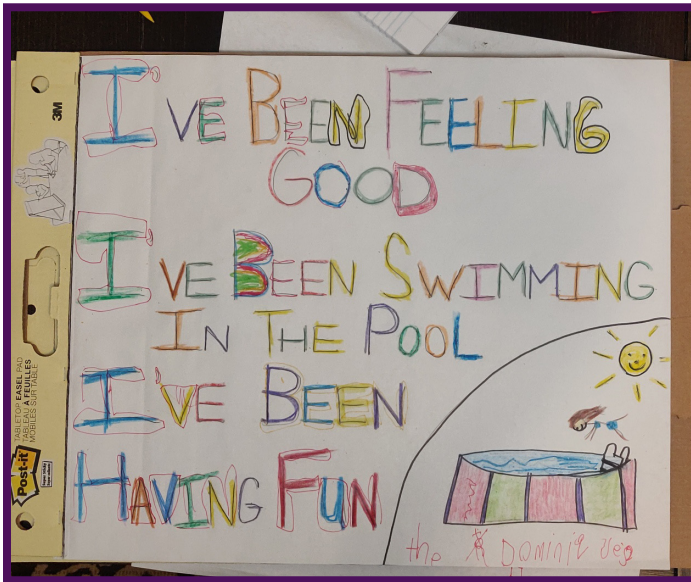 I'VE BEEN FEELING
GOOD
I'VE BEEN SWIMMING
IN THE POOL
I'VE BEEN
HAVING FUN
the Dominiq
3M
TABLETOP EASEL PAD
TABLEAU À FEUILLES
MOBILES SUR TABLE
Post-it